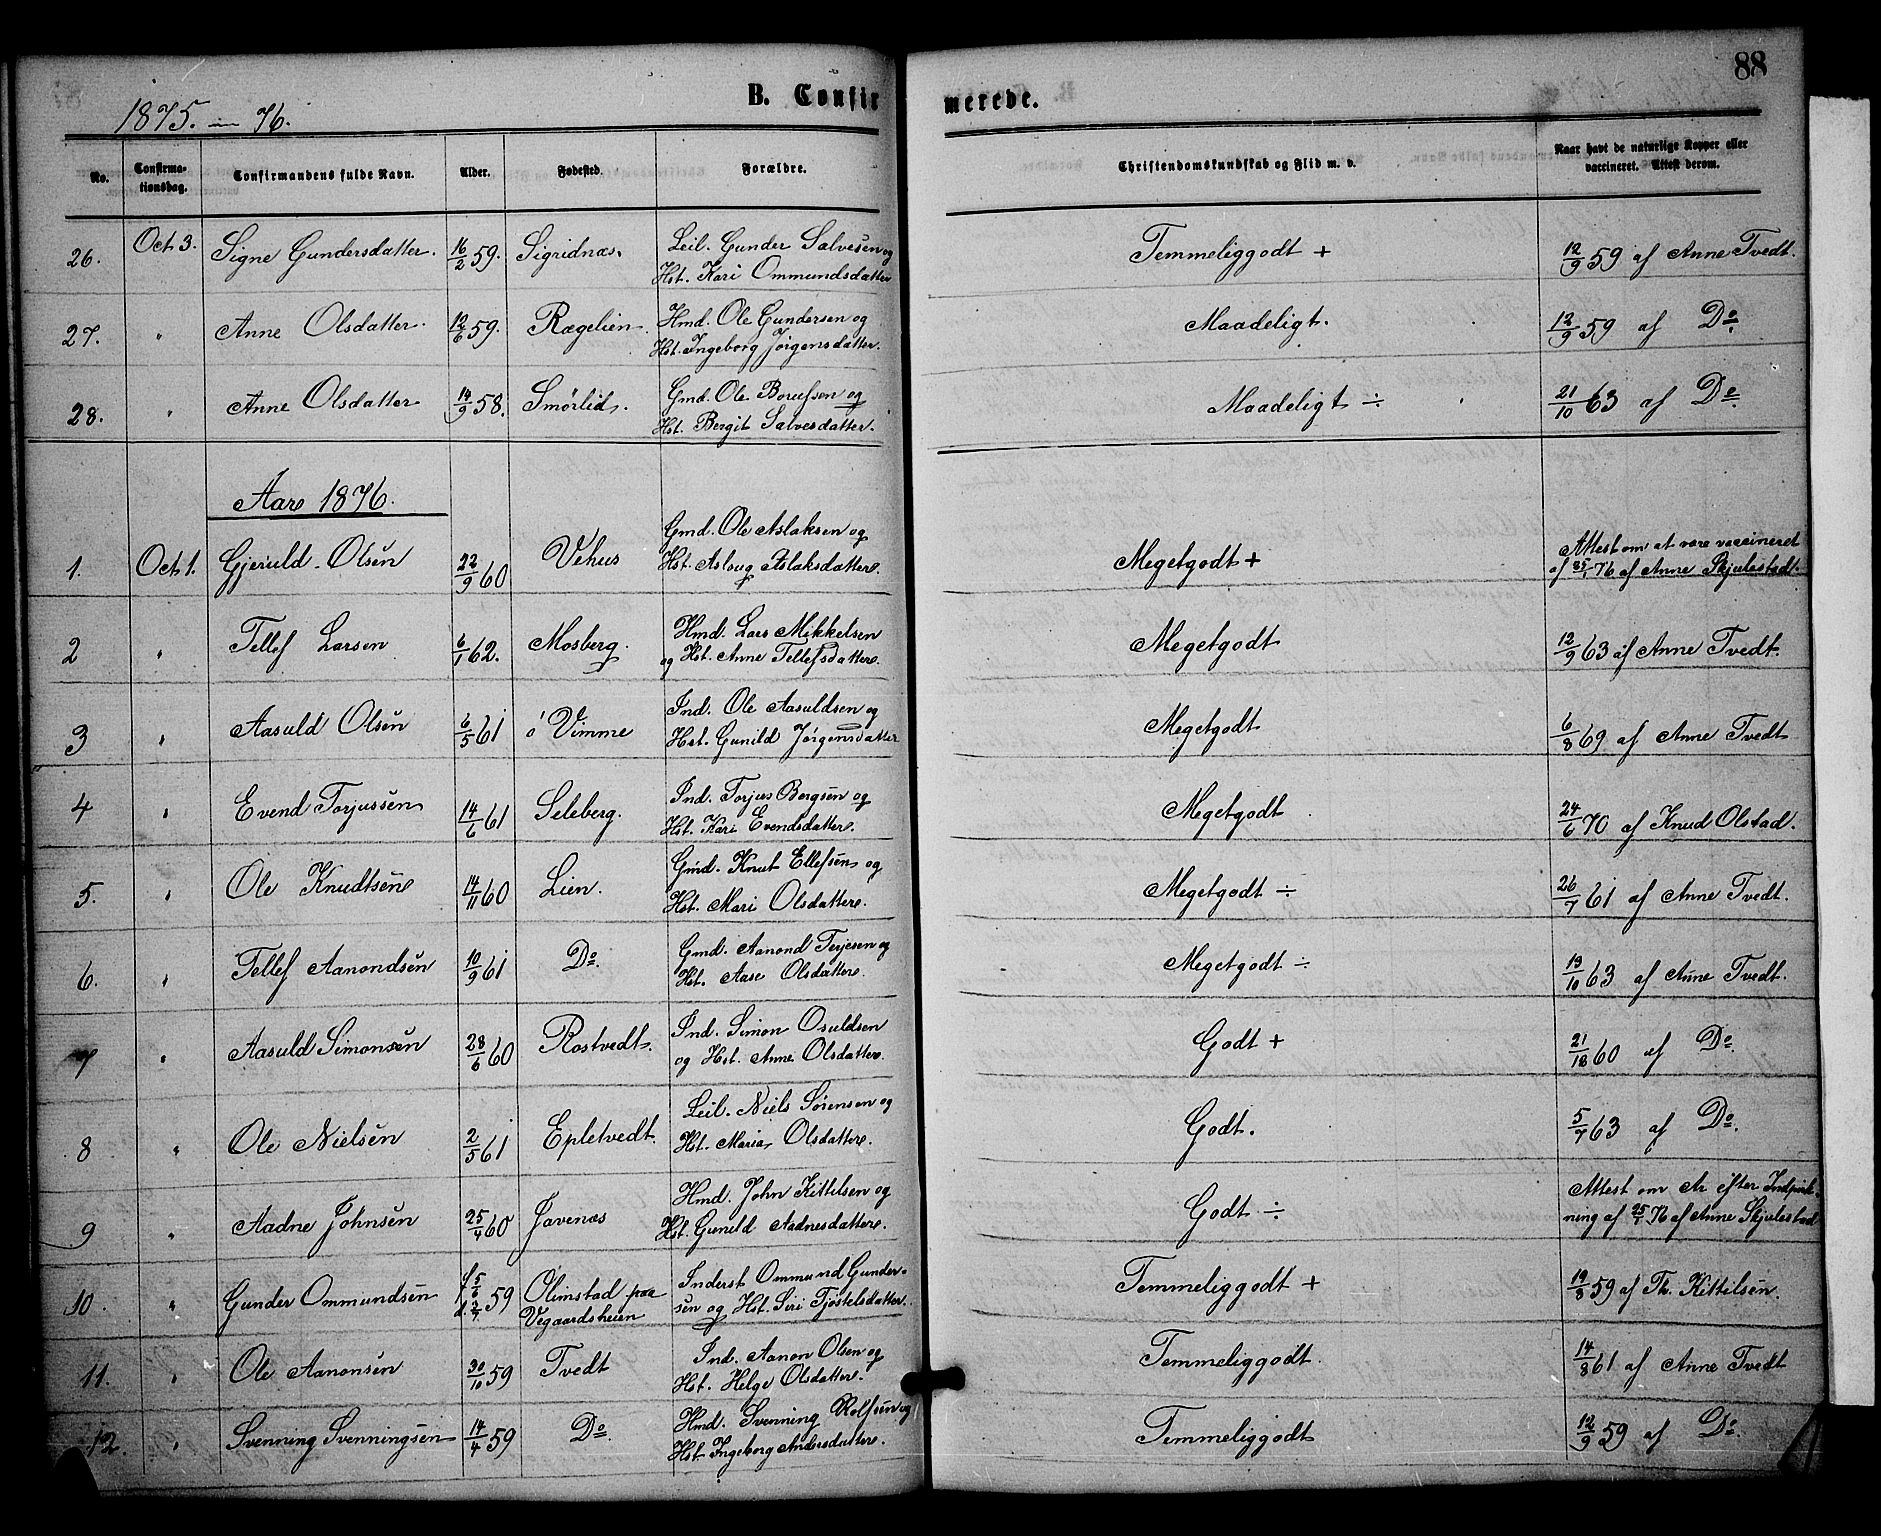 88
1875. — 76.
B. Confirmerede.
No. | Confirmationsdag. | Confirmandens fulde Navn. | Alder. | Fødested. | Forældre. | Christendomskundskab og Flid m. v. | Naar havt de naturlige Kopper eller vaccineret. Attest derom.
26. | Oct 3. | Signe Gundersdatter. | 16/2 59. | Sigridnæs. | Leil. Gunder Salvesen og Hst. Kari Ommundsdatter | Temmeliggodt + | 12/9 59 af Anne Tvedt.
27. | " | Anne Olsdatter. | 12/6 59. | Rægelien. | Hmd. Ole Gundersen og Hst. Ingeborg Jørgensdatter. | Maadeligt. | 12/9 59 af Do.
28. | " | Anne Olsdatter | 14/9 58. | Smørlid. | Gmd. Ole Borufsen og Hst. Bergit Salvesdatter. | Maadeligt ÷ | 21/10 63 af Do.
Aar 1876.
1. | Oct 1. | Gjeruld Olsen | 22/9 60 | Vehus | Gmd. Ole Aslaksen og Hst. Asloug Aslaksdatter. | Megetgodt + | Attest om at være vaccineret af 25/1 76 af Anne Skjulestad.
2 | " | Tellef Larsen | 6/1 62. | Mosberg. | Hmd. Lars Mikkelsen og Hst. Anne Tellefsdatter. | Megetgodt | 12/9 63 af Anne Tvedt.
3 | " | Aasuld Olsen | 6/5 61 | Vimme | Ind. Ole Aasuldsen og Hst. Gunild Jørgensdatter | Megetgodt | 6/8 69 af Anne Tvedt
4 | " | Evend Torjussen | 14/6 61 | Seleberg. | Ind. Torjus Bergsen og Hst. Kari Evendsdatter. | Megetgodt | 24/6 70 af Knud Olstad.
5. | " | Ole Knudtsen | 14/11 60 | Lien. | Gmd. Knut Ellefsen og Hst. Mari Olsdatter. | Megetgodt ÷ | 26/7 61 af Anne Tvedt.
6. | " | Tellef Aanondsen | 10/9 61 | Do. | Gmd. Aanond Terjesen og Hst. Aase Olsdatter. | Megetgodt ÷ | 13/10 63 af Anne Tvedt.
7 | " | Aasuld Simonsen | 28/6 60 | Rostvedt. | Ind. Simon Osuldsen og Hst. Anne Olsdatter. | Godt + | 21/18 60 af Do.
8 | " | Ole Nielsen | 2/5 61 | Epletvedt. | Leil. Niels Sørensen og Hst. Maria Olsdatter. | Godt. | 5/7 63 af Do.
9 | " | Aadne Johnsen | 25/4 60 | Javenæs | Hmd. John Kittilsen og Hst. Gunild Aadnesdatter. | Godt ÷ | Attest om Ar efter Indpodning af 25/1 76 af Anne Skjulestad
10. | " | Gunder Ommundsen | f. 5/6 d. 2/7 59 | Olimstad paa Vegaardsheien | Inderst Ommund Gundersen og Hst. Siri Tjostelsdatter. | Temmeliggodt + | 19/8 59 af Th. Kittilsen.
11. | " | Ole Aanonsen | 30/10 59 | Tvedt | Ind. Aanon Olsen og Hst. Helge Olsdatter. | Temmeliggodt. | 14/8 61 af Anne Tvedt
12. | " | Svenning Svenningsen | 14/4 59 | Do. | Hmd. Svenning Rolfsen og Hst. Ingeborg Andersdatter. | Temmeliggodt | 12/9 59 af Do.